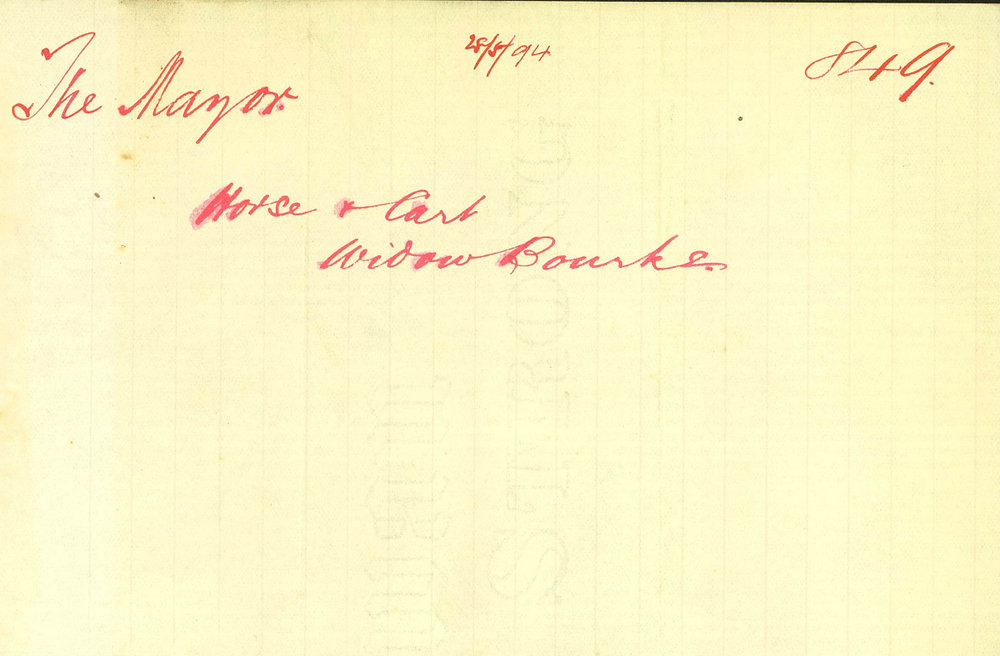 The Mayor.
28/5/94
849.
Horse & Cart
Widow Bourke.